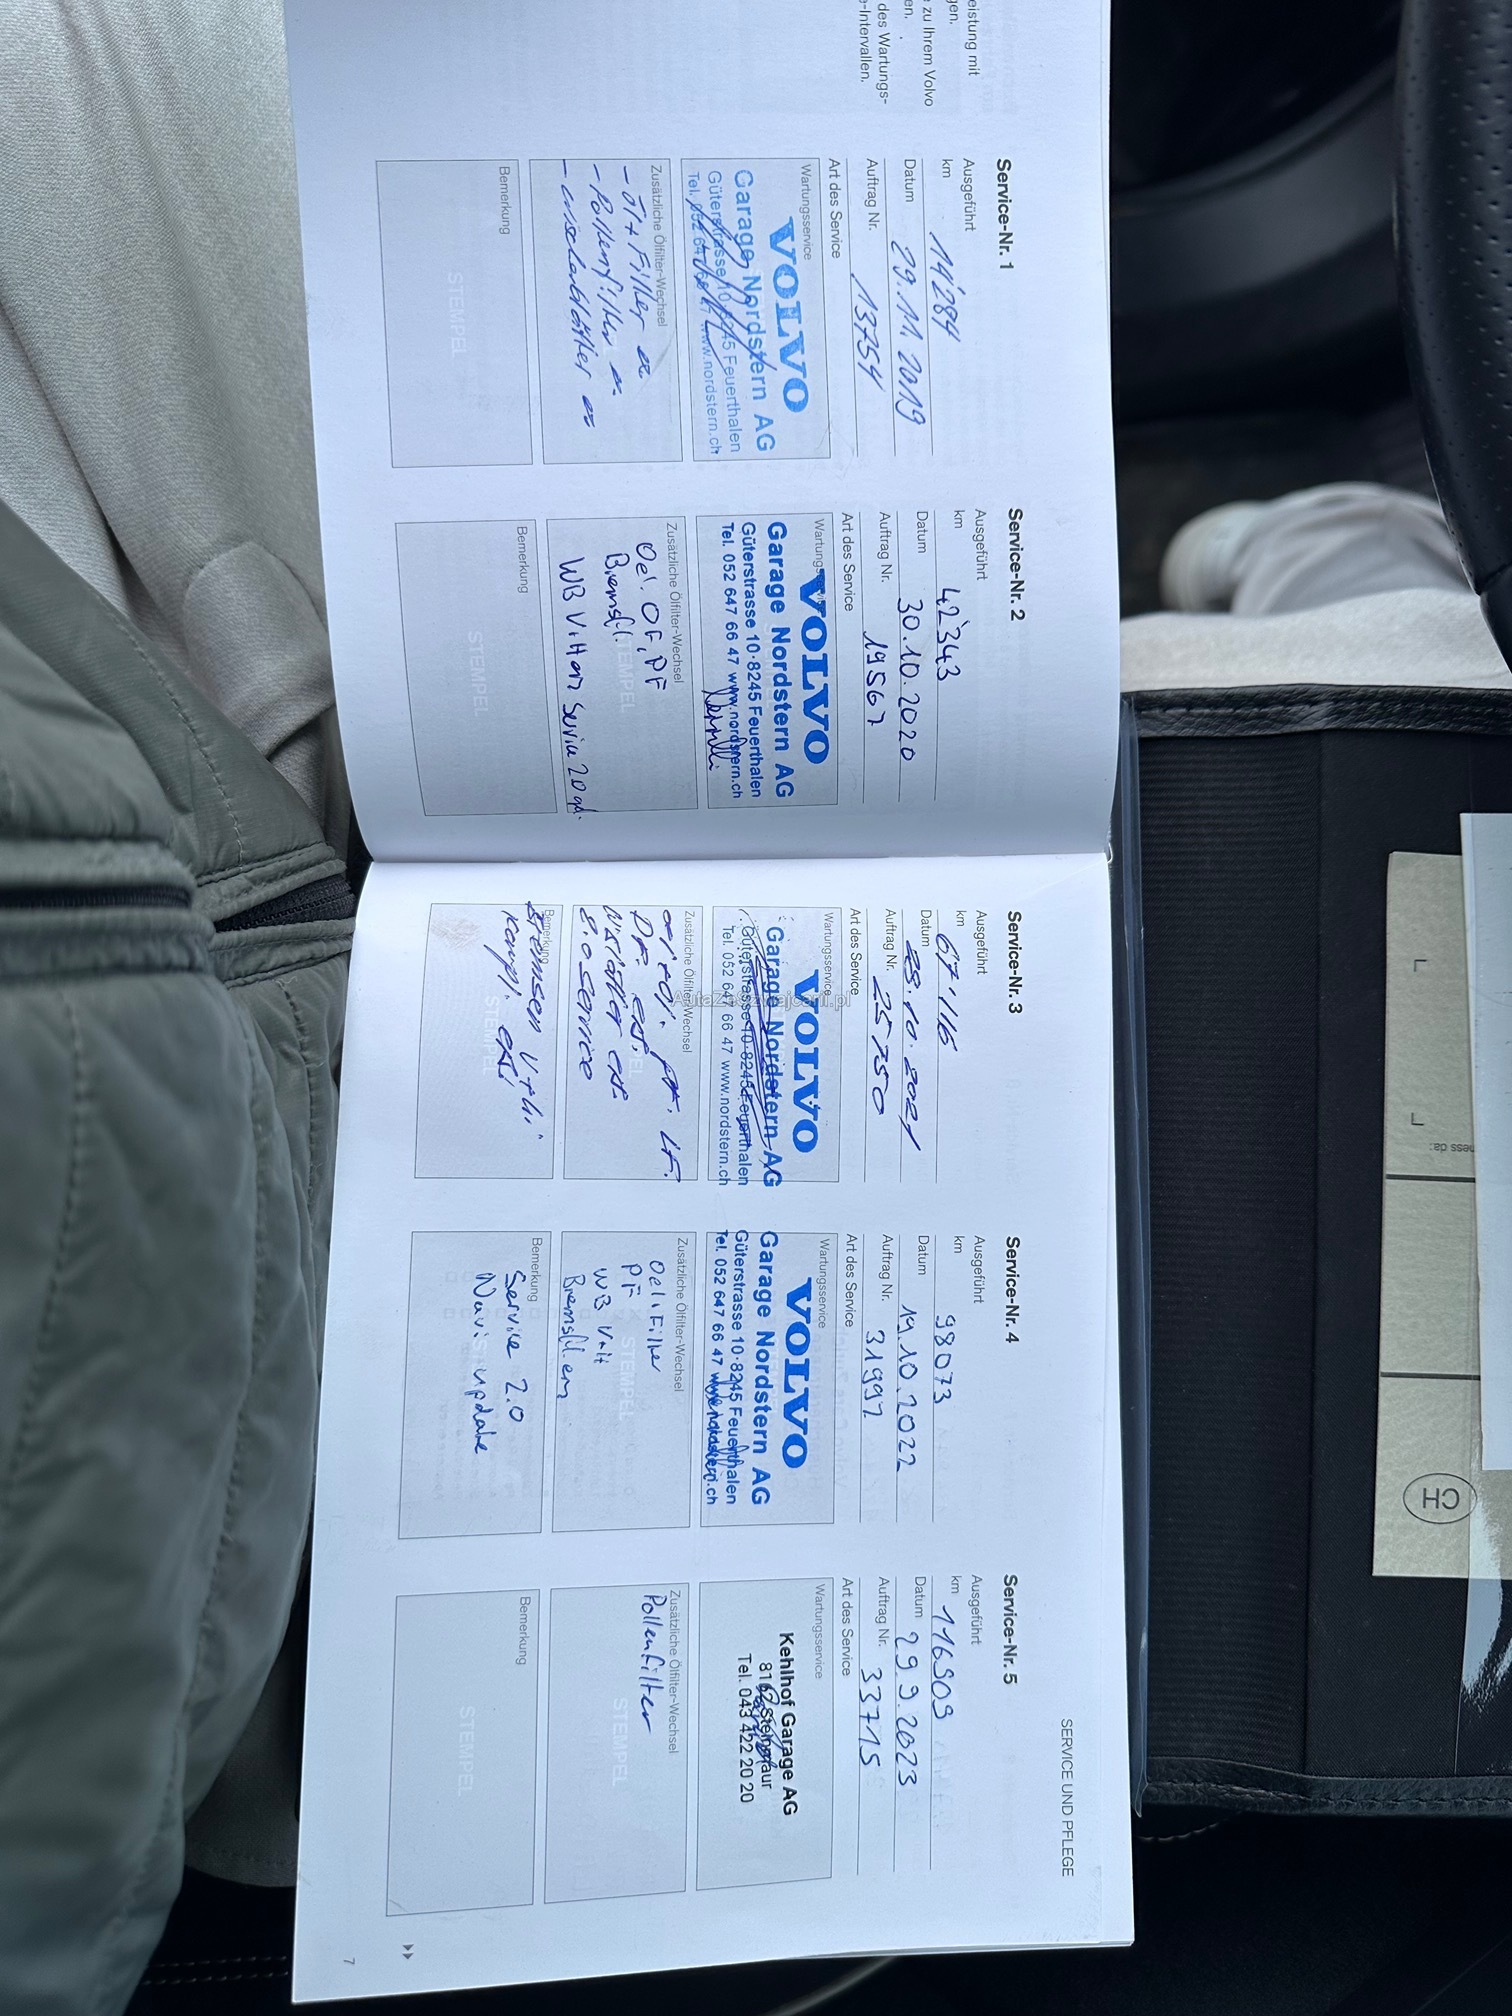 eistung mit
gen.
zu Ihrem Volvo
en.
des Wartungs-
-Intervallen.
Service-Nr. 1
Ausgeführt
km 14'284
Datum 29.11.2019
Auftrag Nr. 13754
Art des Service
Wartungsservice
VOLVO
Garage Nordstern AG
Güterstrasse 10·8245 Feuerthalen
Tel. 052 647 66 47 www.nordstern.ch
Zusätzliche Ölfilter-Wechsel
- Öl + Filter
- Pollenfilter
Bemerkung
STEMPEL
Service-Nr. 2
Ausgeführt
km 42'343
Datum 30.10.2020
Auftrag Nr. 19567
Art des Service
Wartungsservice
VOLVO
Garage Nordstern AG
Güterstrasse 10·8245 Feuerthalen
Tel. 052 647 66 47 www.nordstern.ch
Zusätzliche Ölfilter-Wechsel
Oel. OF, PF
Bremsfl.
WB V+H Service 2.0
STEMPEL
Bemerkung
STEMPEL
Service-Nr. 3
Ausgeführt
km 67'116
Datum 25.10.2021
Auftrag Nr. 25750
Art des Service
Wartungsservice
VOLVO
Garage Nordstern AG
Güterstrasse 10·8245 Feuerthalen
Tel. 052 647 66 47 www.nordstern.ch
Zusätzliche Ölfilter-Wechsel
LF.
service
Bemerkung
Bremsen V+H
kompl.
STEMPEL
Service-Nr. 4
Ausgeführt
km 98073
Datum 19.10.2022
Auftrag Nr. 31997
Art des Service
Wartungsservice
VOLVO
Garage Nordstern AG
Güterstrasse 10·8245 Feuerthalen
Tel. 052 647 66 47 www.nordstern.ch
Zusätzliche Ölfilter-Wechsel
Oel + Filter
PF
WB V+H
STEMPEL
Bemerkung
Service 2.0
Navi update
Service-Nr. 5
Ausgeführt
km 116909
Datum 29.9.2023
Auftrag Nr. 33715
Art des Service
Wartungsservice
Kehlhof Garage AG
8162 Steinmaur
Tel. 043 422 20 20
Zusätzliche Ölfilter-Wechsel
Pollenfilter
STEMPEL
Bemerkung
STEMPEL
SERVICE UND PFLEGE
7
CH